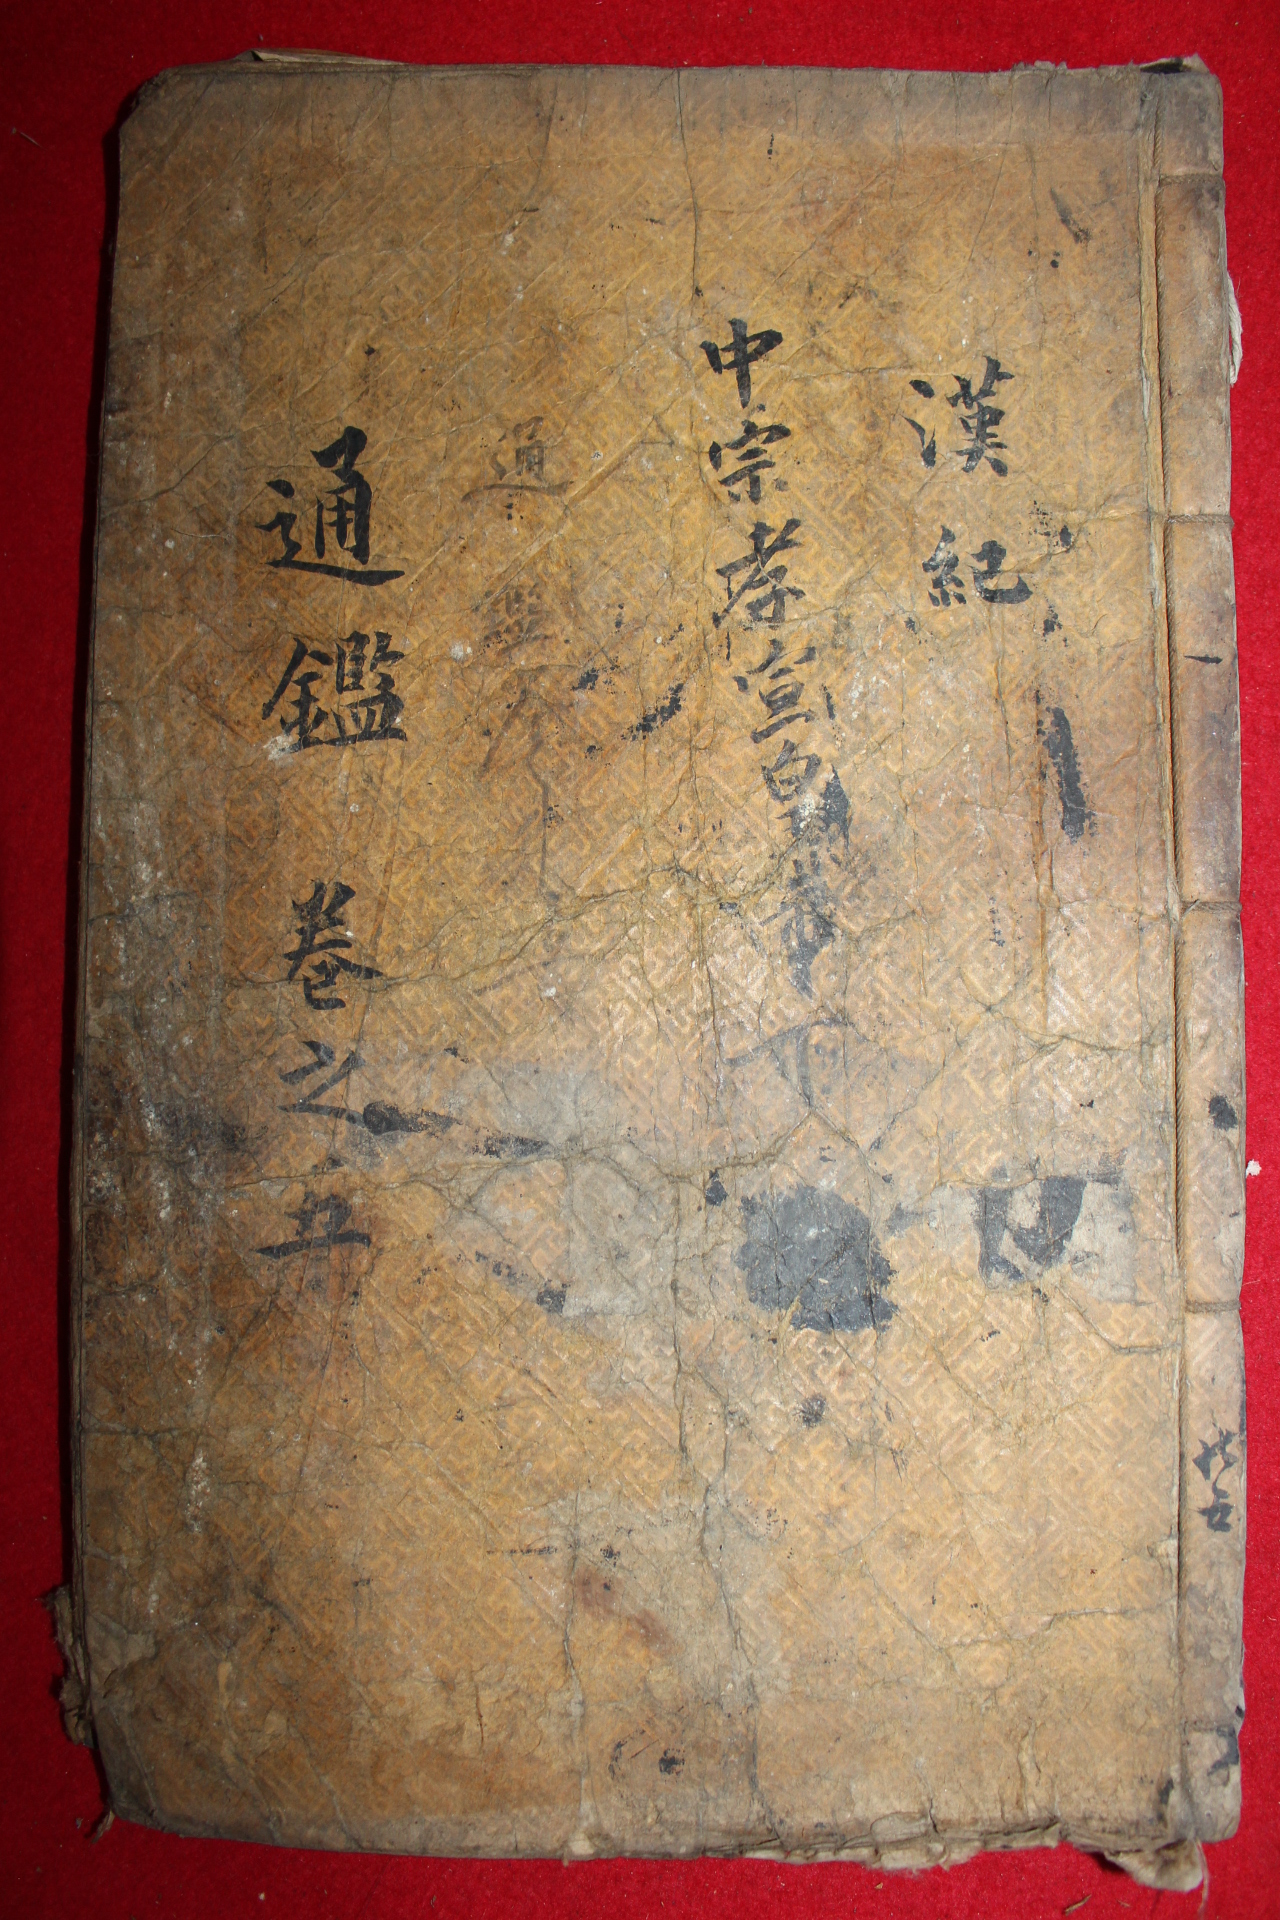 漢紀
中宗孝宣皇帝下
通鑑
通鑑 卷之五
共五